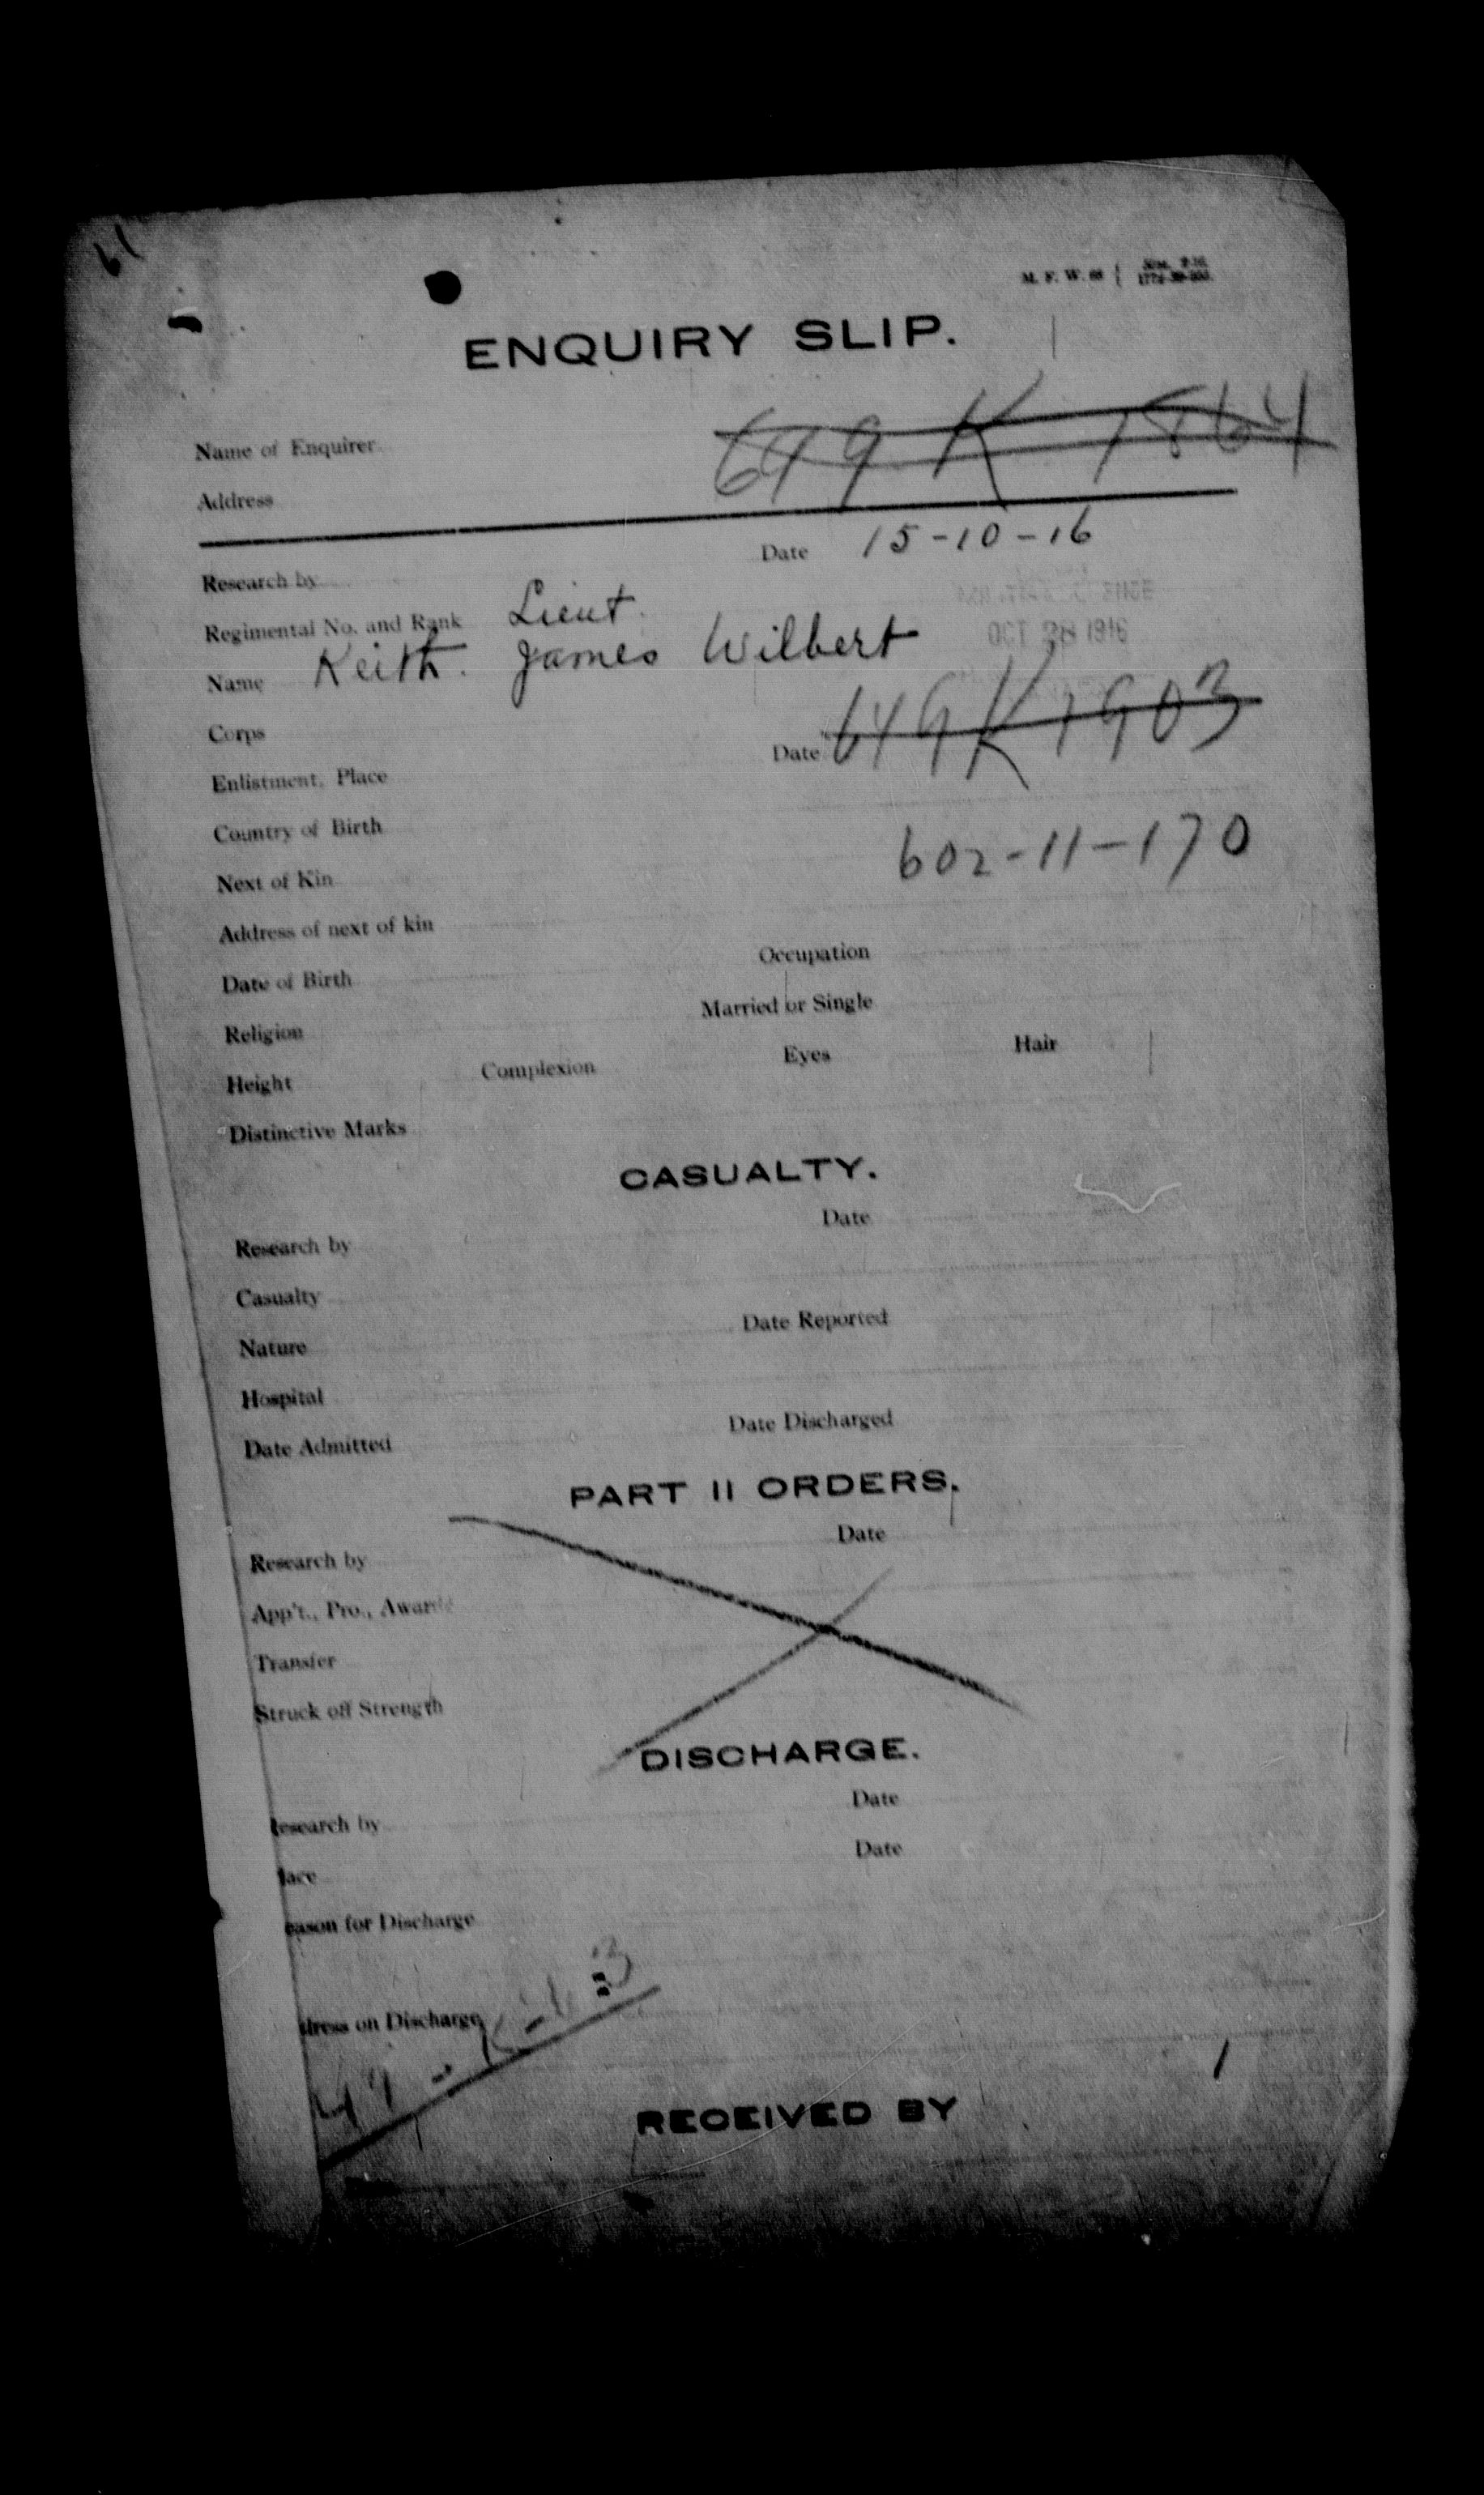 61
M. F. W. 68
ENQUIRY SLIP.
649 K 1864
Name of Enquirer
Address
Date 15-10-16
Research by
Regimental No. and Rank Lieut.
OCT 28 1916
Name Keith. James Wilbert
Corps
649 K 1903
Enlistment, Place Date
Country of Birth
602-11-170
Next of Kin
Address of next of kin
Date of Birth Occupation
Religion Married or Single
Height Complexion Eyes Hair
Distinctive Marks
CASUALTY.
Research by Date
Casualty
Nature Date Reported
Hospital
Date Admitted Date Discharged
PART II ORDERS.
Research by Date
App't., Pro., Award
Transfer
Struck off Strength
DISCHARGE.
esearch by Date
lace Date
eason for Discharge
dress on Discharge
RECEIVED BY